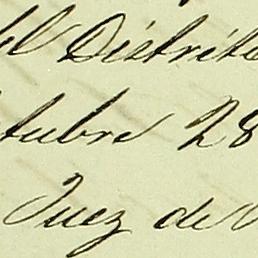 del Distrito
ctubre 28
Juez de